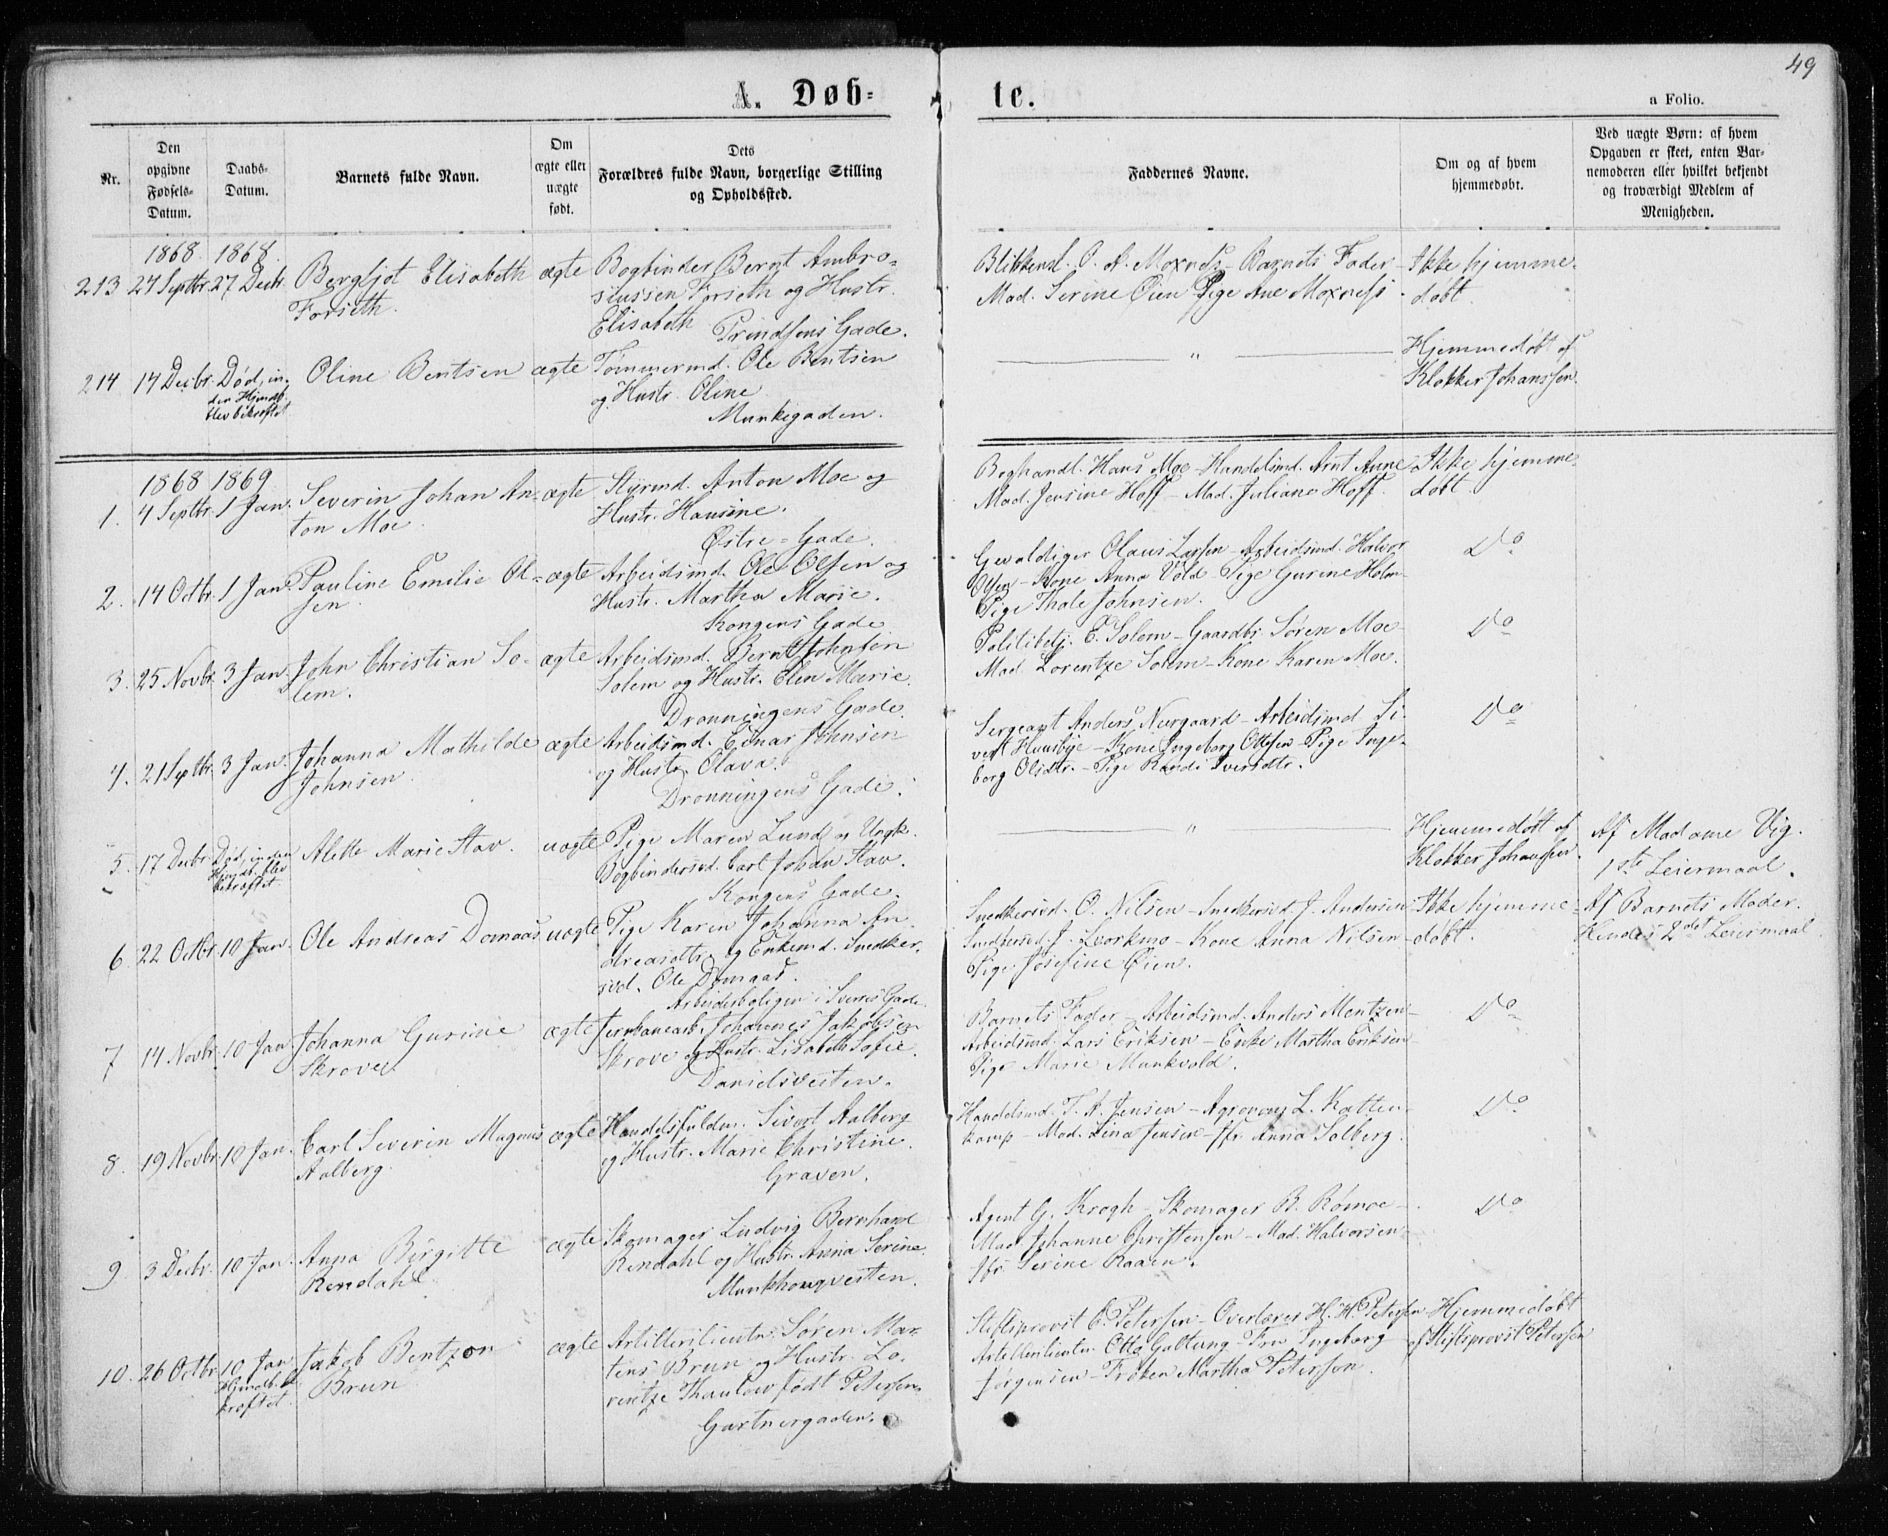 49
A. Døbte.
a Folio.
Nr.
Den opgivne Fødsels-Datum.
Daabs-Datum.
Barnets fulde Navn.
Om ægte eller uægte født.
Dets Forældres fulde Navn, borgerlige Stilling og Opholdssted.
Faddernes Navne.
Om og af hvem hjemmedøbt.
Ved uægte Børn: af hvem Opgaven er skeet, enten Barnemoderen eller hvilket bekjendt og troværdigt Medlem af Menigheden.
1868. 1868.
213 27 Septbr. 27 Decbr. Bergljot Elisabeth ægte Bogbinder Bernt Ambro-
Forseth. siussen Forseth og Hustr.
Elisabeth Prindsens Gade.
Blikkensl. O. A. Moxness - Barnets Fader - Ikke hjemme-
Mad. Serine Øien Pige Ane Moxness. døbt.
214 17 Decbr. Død, in- Oline Bentsen ægte Tømmermd. Ole Bentsen
den Hjmdb. og Hustr. Oline
blev bekræftet Munkegaden.
" Hjemmedøbt af
Klokker Johanssen.
1868 1869
1. 4 Septbr. 1 Jan. Severin Johan An- ægte Styrmd. Anton Moe og
ton Moe. Hustr. Hansine.
Østre-Gade.
Boghandl. Hans Moe - Handelsmd. Arnt Aune Ikke hjemme-
Mad. Jensine Hoff - Mad. Juliane Hoff. døbt
2. 14 Octbr. 1 Jan. Pauline Emilie Ol- ægte Arbeidsmd. Ole Olsen og
sen. Hustr. Martha Marie.
Kongens Gade
Gevaldiger Olaus Larsen - Arbeidsmd. Halvor Do
Olsen - Kone Anna Vold - Pige Gurine Holm-
Pige Thale Johnsen.
3. 25 Novbr. 3 Jan. John Christian So- ægte Arbeidsmd. Bernt Johnsen
lem. Solem og Hustr. Elen Marie.
Dronningens Gade.
Politibetj. E. Solem - Gaardbr. Søren Moe - Do
Mad. Lorentze Solem - Kone Karen Moe.
4. 21 Septbr. 3 Jan. Johanna Mathilde ægte Arbeidsmd. Einar Johnsen
Johnsen og Hustr. Olava.
Dronningens Gade.
Sergeant Anders Nergaard - Arbeidsmd Si- Do
vert Huusbye - Kone Ingeborg Ottesen - Pige Inge-
borg Olsdtr. - Pige Randi Iversdtr.
5. 17 Decbr. Død, inden Alette Marie Stav. uægte Pige Maren Lund og Ungk.
Hjmdb. blev Bogbindersvd. Carl Johan Stav.
bekræftet Kongens Gade.
" Hjemmedøbt af Af Madame Vig.
Klokker Johanssen. 1ste Leiermaal.
6. 22 Octbr. 10 Jan. Ole Andreas Domaas uægte Pige Karen Johanna An-
dreasdtr. og Enkemd. Snedker-
svd. Ole Domaas.
Arbeiderboligen i Sverres Gade.
Snedkersvd. O. Nilsen - Snedkersvd. J. Andersen Ikke hjemme- Af Barnets Moder.
Snedkersvd. J. Leorkmo - Kone Anna Nilsen - døbt. Hendes 2det Leiermaal.
Pige Josefine Øien.
7 14 Novbr. 10 Jan. Johanna Gurine ægte Jernbanearb. Johannes Jakobsen
Skrove. Skrove og Hustr. Lisabeth Sofie.
Danielsveiten.
Barnets Fader - Arbeidsmd. Anders Mentzen - Do
Arbeidsmd. Lars Eriksen - Enke Martha Eriksen -
Pige Marie Munkvold.
8. 19 Novbr. 10 Jan. Carl Severin Magnus ægte Handelsfuldm. Sivert Aalberg
Aalberg. og Hustr. Marie Christine.
Graven.
Handelsmd. T. A. Jensen - Agronom L. Katten- Do
kamp - Mad. Lina Jensen - Jfr. Anna Solberg.
9 3 Decbr. 10 Jan. Anna Birgitte ægte Skomager Ludvig Bernhard
Rendahl. Rendahl og Hustr. Anna Serine.
Munkhougveiten.
Agent G. Krogh - Skomager B. Rømoe - Do
Mad. Johanne Christensen - Mad. Halvorsen -
Jfr. Serine Raaen.
10. 26 Octbr. 10 Jan. Jakob Bentzon ægte Artillerilieutn. Søren Mar-
Hjmdb. be- Brun tens Brun og Hustr. Lo-
kræftet. rentze Thaulow født Petersen.
Gartnergaden.
Stiftsprovst C. Petersen - Overlærer H. H. Petersen Hjemmedøbt
Artillerilieutn. Otto Galtung - Fru Ingeborg af Stiftsprovst Petersen
Jørgensen - Frøken Martha Petersen.